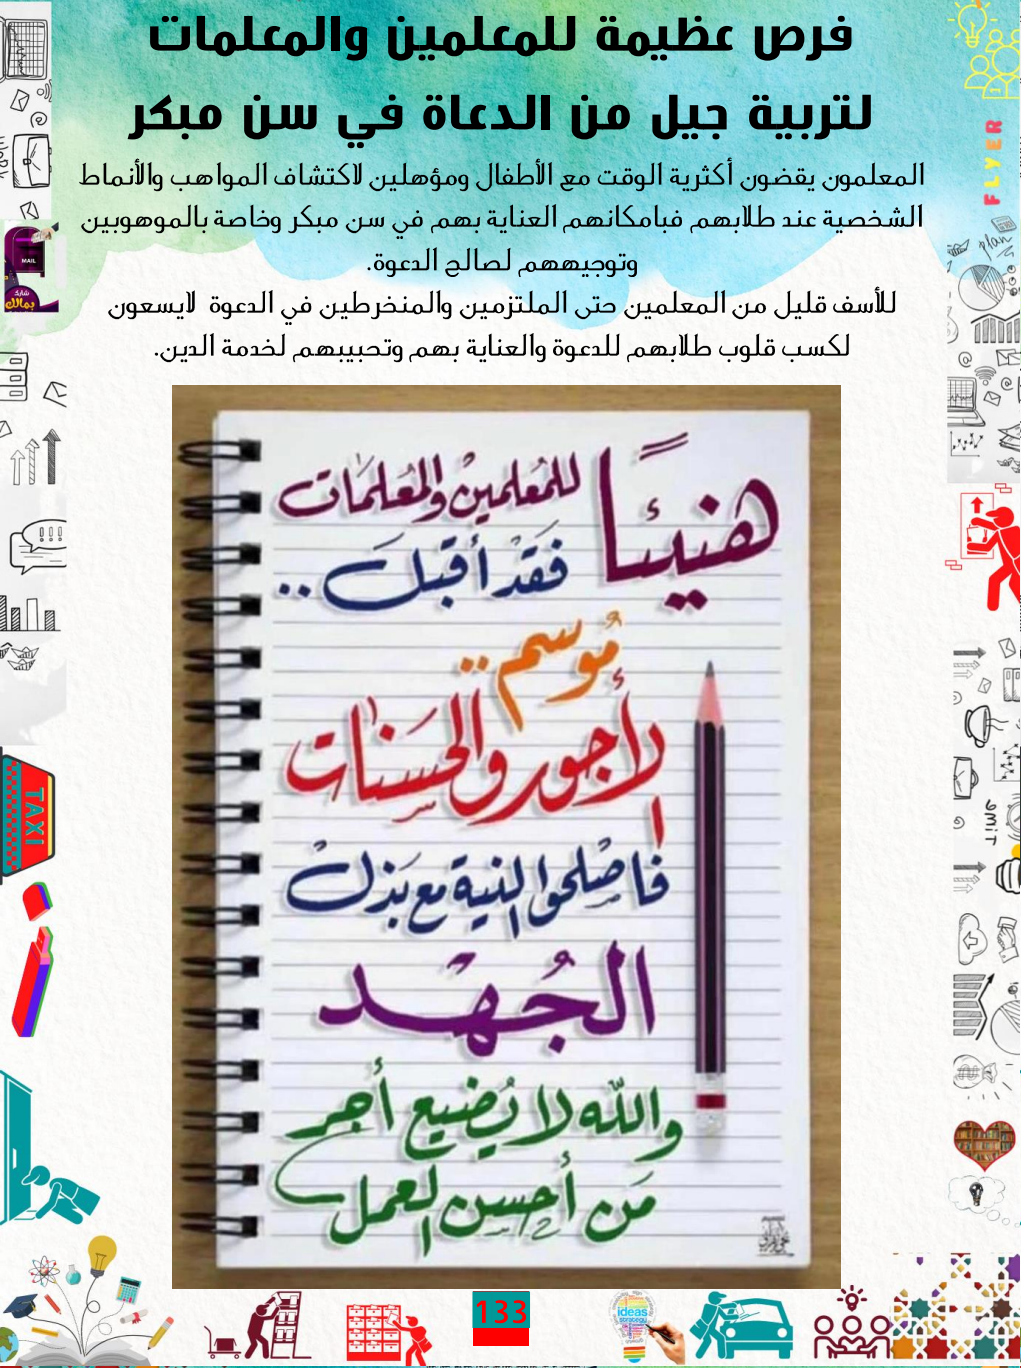 فرص عظيمة للمعلمين والمعلمات
لتربية جيل من الدعاة في سن مبكر
المعلمون يقضون أكثرية الوقت مع الأطفال ومؤهلين لاكتشاف المواهب والأنماط
الشخصية عند طلابهم فبامكانهم العناية بهم في سن مبكر وخاصة بالموهوبين
وتوجيههم لصالح الدعوة.
للأسف قليل من المعلمين حتى الملتزمين والمنخرطين في الدعوة لايسعون
لكسب قلوب طلابهم للدعوة والعناية بهم وتحبيبهم لخدمة الدين.
هنيئاً للمُعلمين والمُعَلمَات
فَقَدْ أقبَلَ..
مُوسم..
الأجور والحَسَنات
فاصلحوا النية مع بَذل
الجُهْد
والله لا يُضيع أجر
مَن أحسن العمل
FLYER
plan
MAIL
شارك
بمالك
TAXI
TIME
ideas
strategy
133